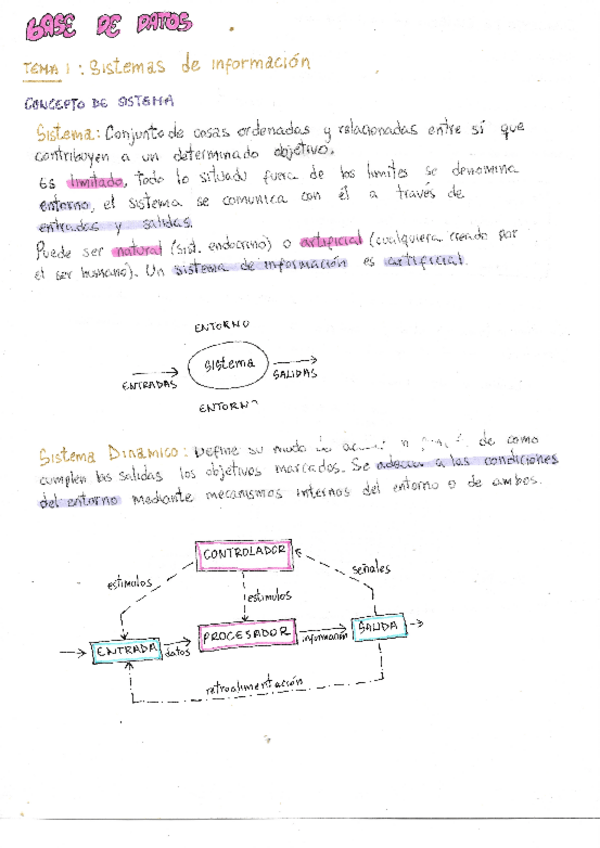 BASE DE DATOS
TEMA 1: Sistemas de información
CONCEPTO DE SISTEMA
Sistema: Conjunto de cosas ordenadas y relacionadas entre sí que
contribuyen a un determinado objetivo.
Es limitado, todo lo situado fuera de los límites se denomina
entorno, el sistema se comunica con él a través de
entradas y salidas.
Puede ser natural (sist. endocrino) o artificial (cualquiera creado por
el ser humano). Un sistema de información es artificial.
ENTORNO
ENTRADAS
Sistema
SALIDAS
ENTORNO
Sistema Dinámico: Define su modo de de como
cumplen las salidas los objetivos marcados. Se adecua a las condiciones
del entorno mediante mecanismos internos del entorno o de ambos.
CONTROLADOR
estimulos
señales
estimulos
ENTRADA
datos
PROCESADOR
información
SALIDA
retroalimentación